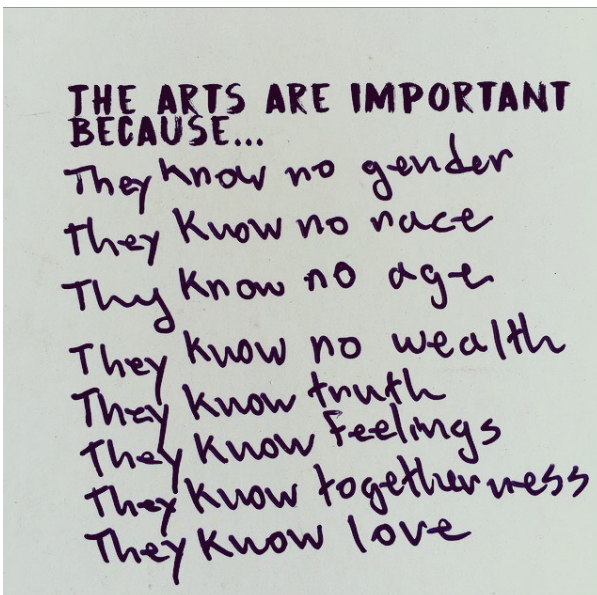 THE ARTS ARE IMPORTANT
BECAUSE...
They know no gender
They know no race
Thy know no age
They know no wealth
They know truth
They know feelings
They know togetherness
They know love